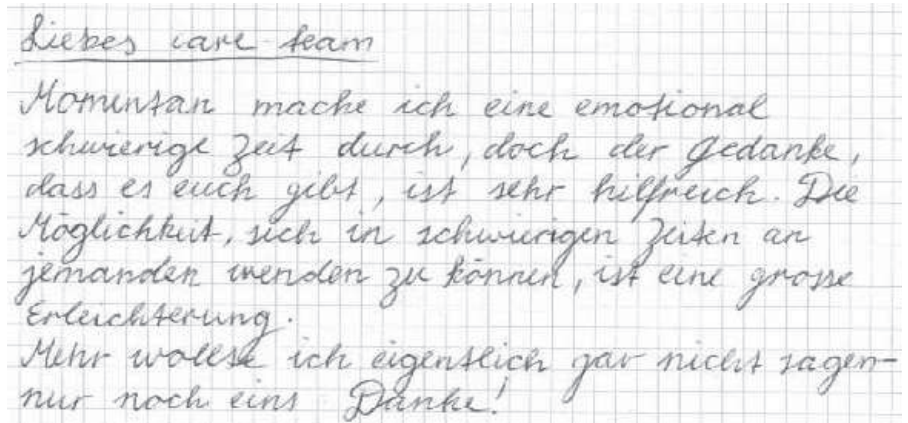 Liebes care team
Momentan mache ich eine emotional
schwierige Zeit durch, doch der Gedanke,
dass es euch gibt, ist sehr hilfreich. Die
Möglichkeit, sich in schwierigen Zeiten an
jemanden wenden zu können, ist eine grosse
Erleichterung.
Mehr wollte ich eigentlich gar nicht sagen-
nur noch eins Danke!